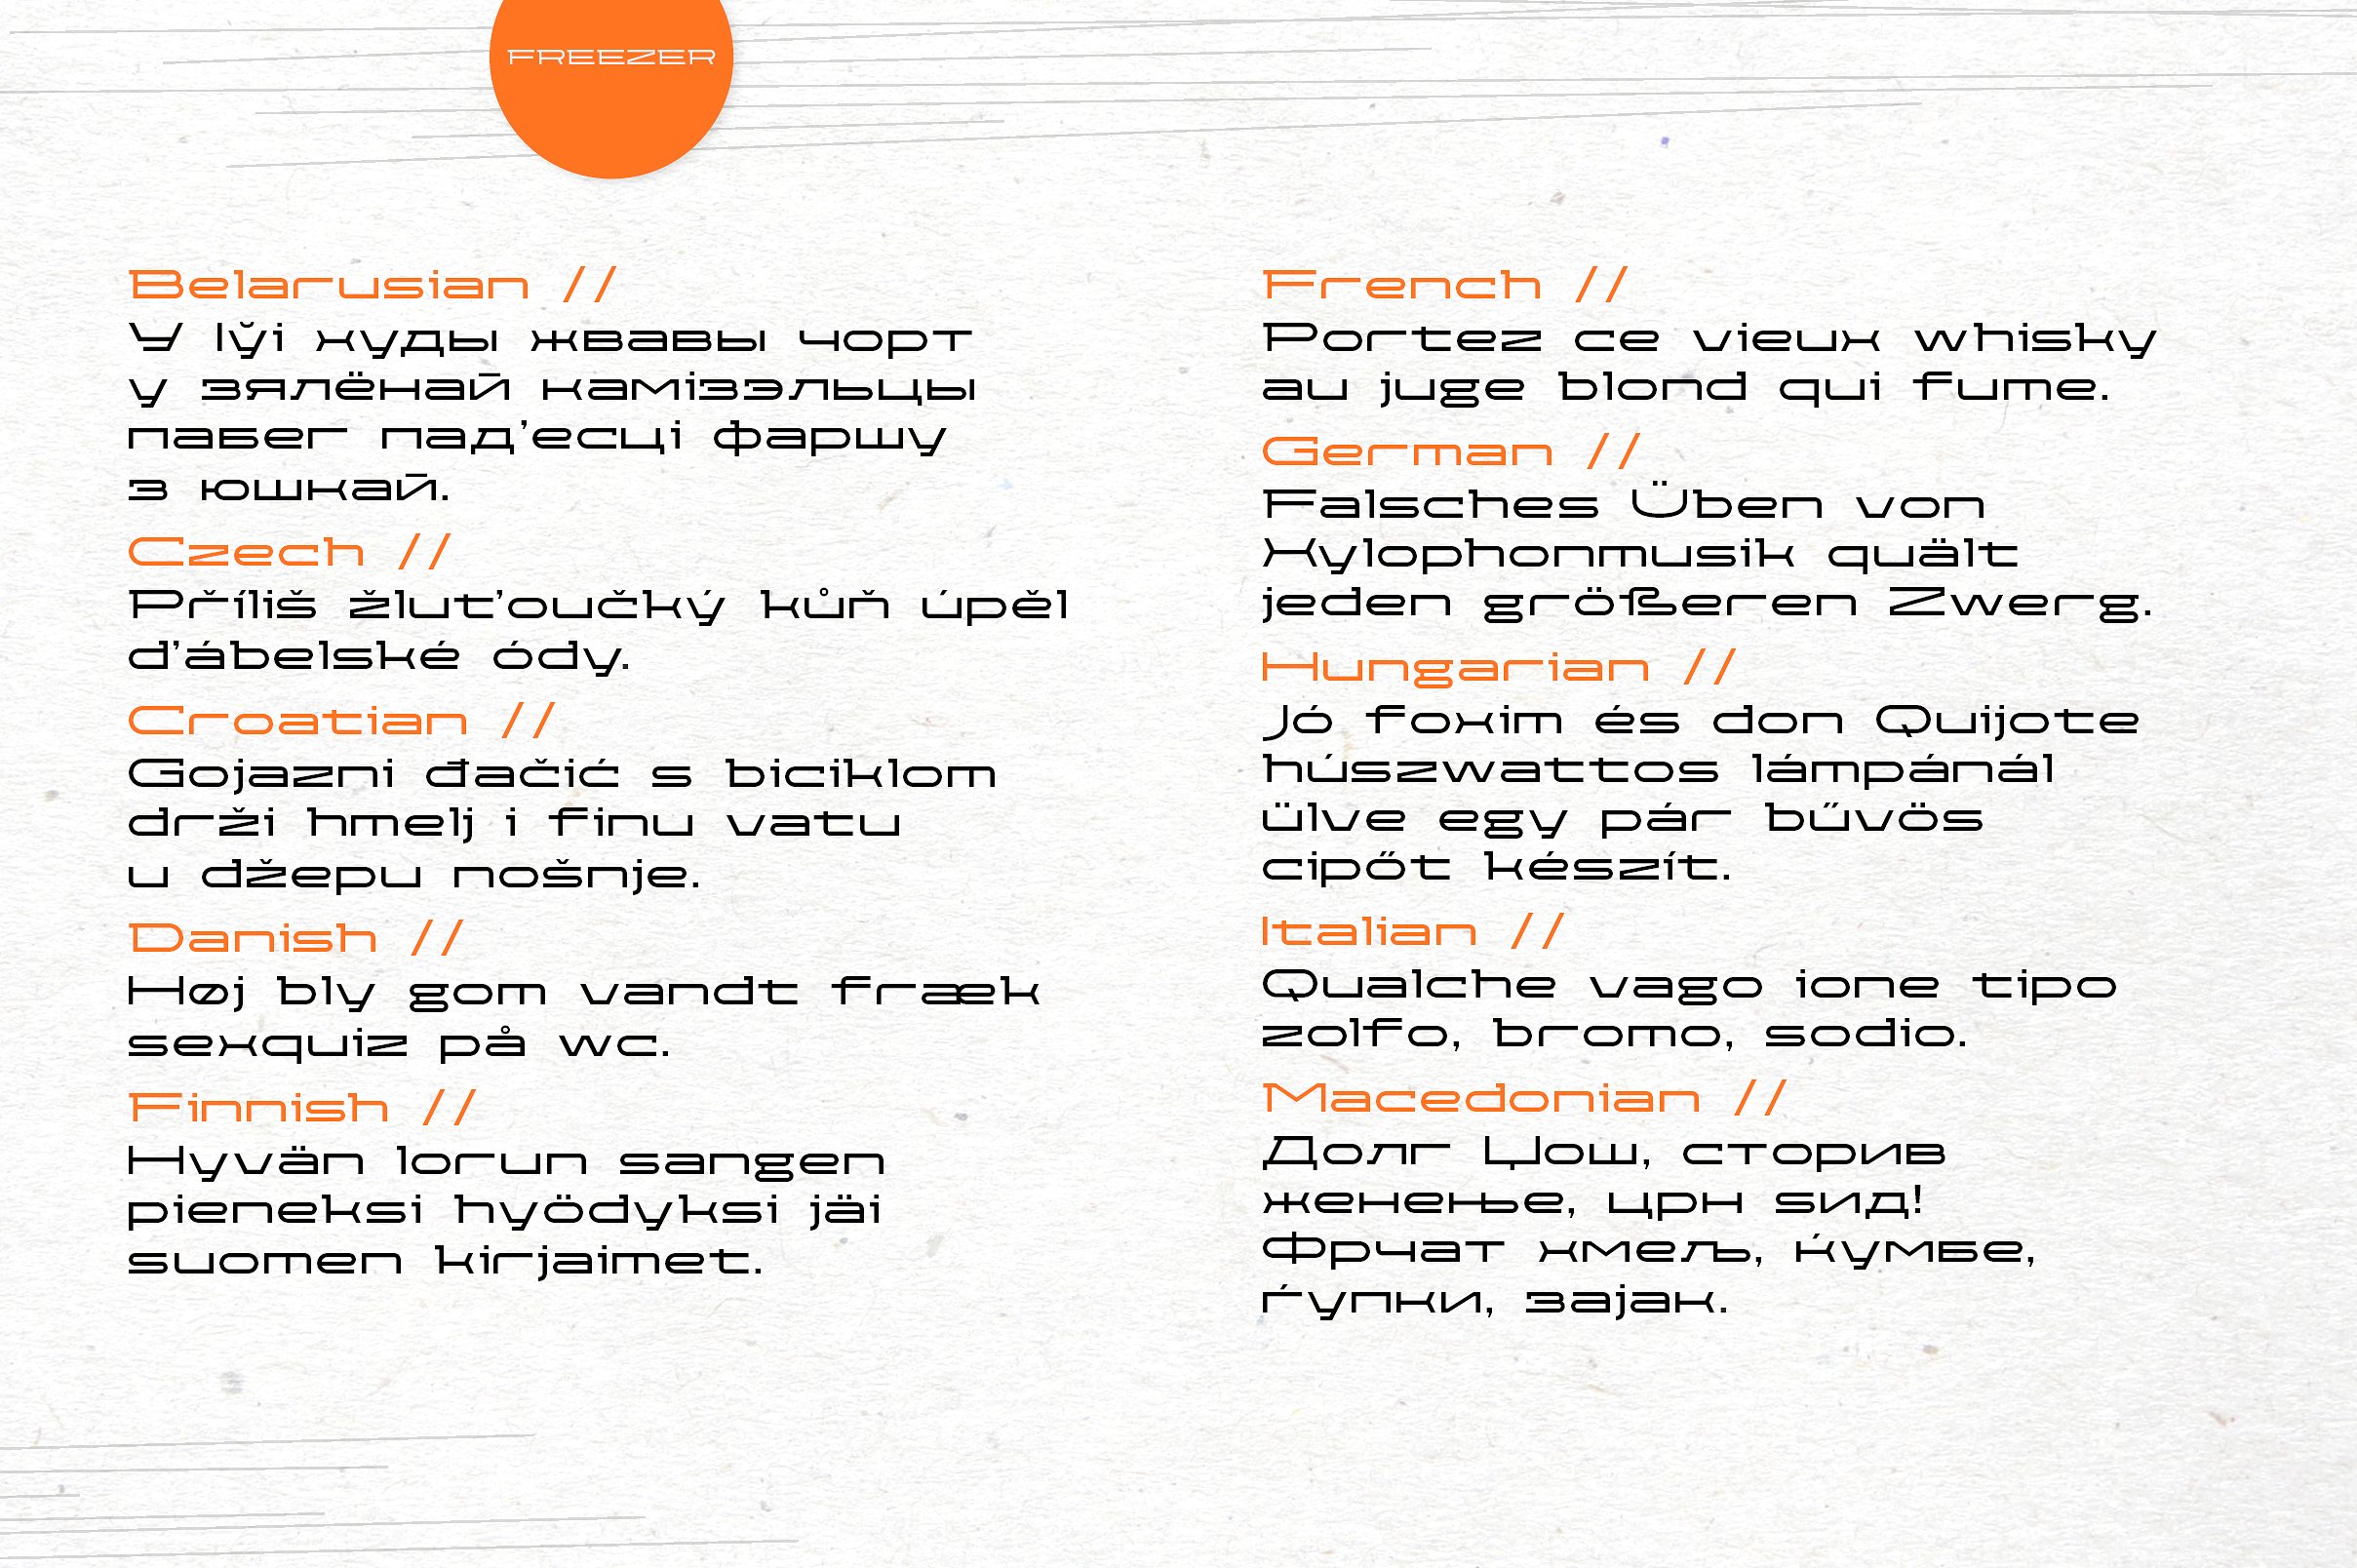 FREEZER
Belarusian //
У Іўі худы жвавы чорт
у зялёнай камізэльцы
пабег пад’есці фаршу
з юшкай.
Czech //
Příliš žluťoučký kůň úpěl
d’ábelské ódy.
Croatian //
Gojazni đačić s biciklom
drži hmelj i finu vatu
u džepu nošnje.
Danish //
Høj bly gom vandt fræk
sexquiz på wc.
Finnish //
Hyvän lorun sangen
pieneksi hyödyksi jäi
suomen kirjaimet.
French //
Portez ce vieux whisky
au juge blond qui fume.
German //
Falsches Üben von
Xylophonmusik quält
jeden größeren Zwerg.
Hungarian //
Jó foxim és don Quijote
húszwattos lámpánál
ülve egy pár bűvös
cipőt készít.
Italian //
Qualche vago ione tipo
zolfo, bromo, sodio.
Macedonian //
Долг Џош, сторив
жененье, црн ѕид!
Фрчат хмељ, ќумбе,
ѓупки, зајак.